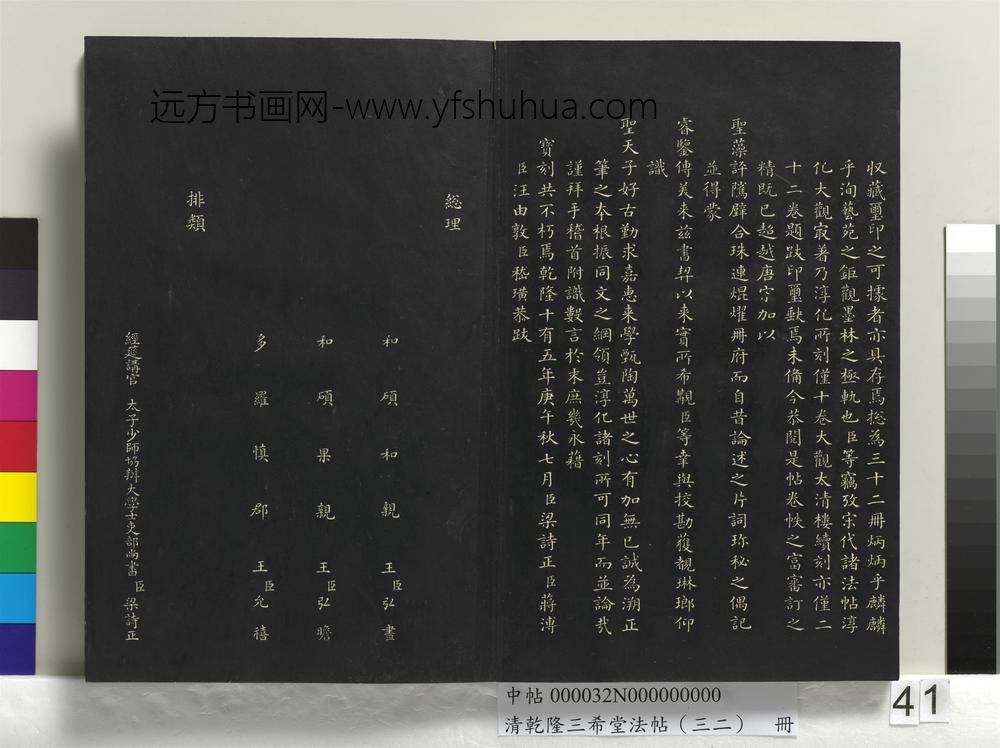 远方书画网-www.yfshuhua.com
收藏璽印之可據者亦具存焉総為三十二冊炳炳乎麟麟
乎洵藝苑之鉅觀墨林之極軌也臣等竊攷宋代諸法帖淳
化大觀㝡著乃淳化所刻僅十卷大觀太清樓續刻亦僅二
十二卷題跋印璽缺焉未備今恭閱是帖卷帙之富審訂之
精既已超越唐宋加以
聖藻評隲璧合珠連焜燿冊府而自昔論述之片詞珎秘之偶記
並得蒙
睿鑒傳美來兹書契以來實所希覯臣等幸與挍勘獲覩琳瑯仰
識
聖天子好古勤求嘉惠來學甄陶萬世之心有加無已誠為溯正
筆之本根振同文之綱領豈淳化諸刻所可同年而並論哉
謹拜手稽首附識數言於末庶幾永藉
寶刻共不朽焉乾隆十有五年庚午秋七月臣梁詩正臣蔣溥
臣汪由敦臣嵇璜恭跋
総理
和碩和親王臣弘晝
和碩果親王臣弘瞻
多羅慎郡王臣允禧
排類
經筵講官 太子少師協辦大學士吏部尚書臣梁詩正
中帖 000032N000000000
清乾隆三希堂法帖（三二） 冊
41